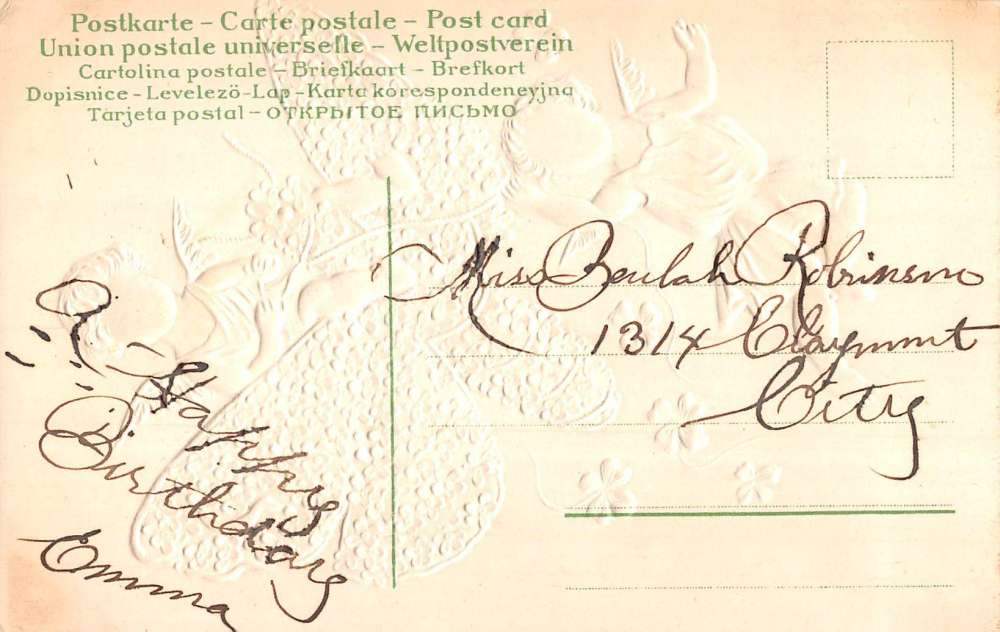 Postkarte – Carte postale – Post card
Union postale universelle – Weltpostverein
Cartolina postale – Briefkaart – Brefkort
Dopisnice - Levelezö-Lap - Karta kórespondencyjna
Tarjeta postal – ОТКРЫТОЕ ПИСЬМО
Miss Beulah Robinson
1314 Claymont
City
A Happy
Birthday
Emma